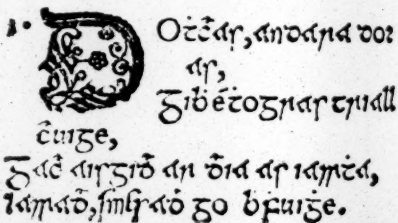 1. DOṫċas, andara dor
as,
Gibétogras triall
ċuige,
Gaċ aisgiḋ ar ḋia as iarrṫa,
iarraḋ, go bfuiġe.